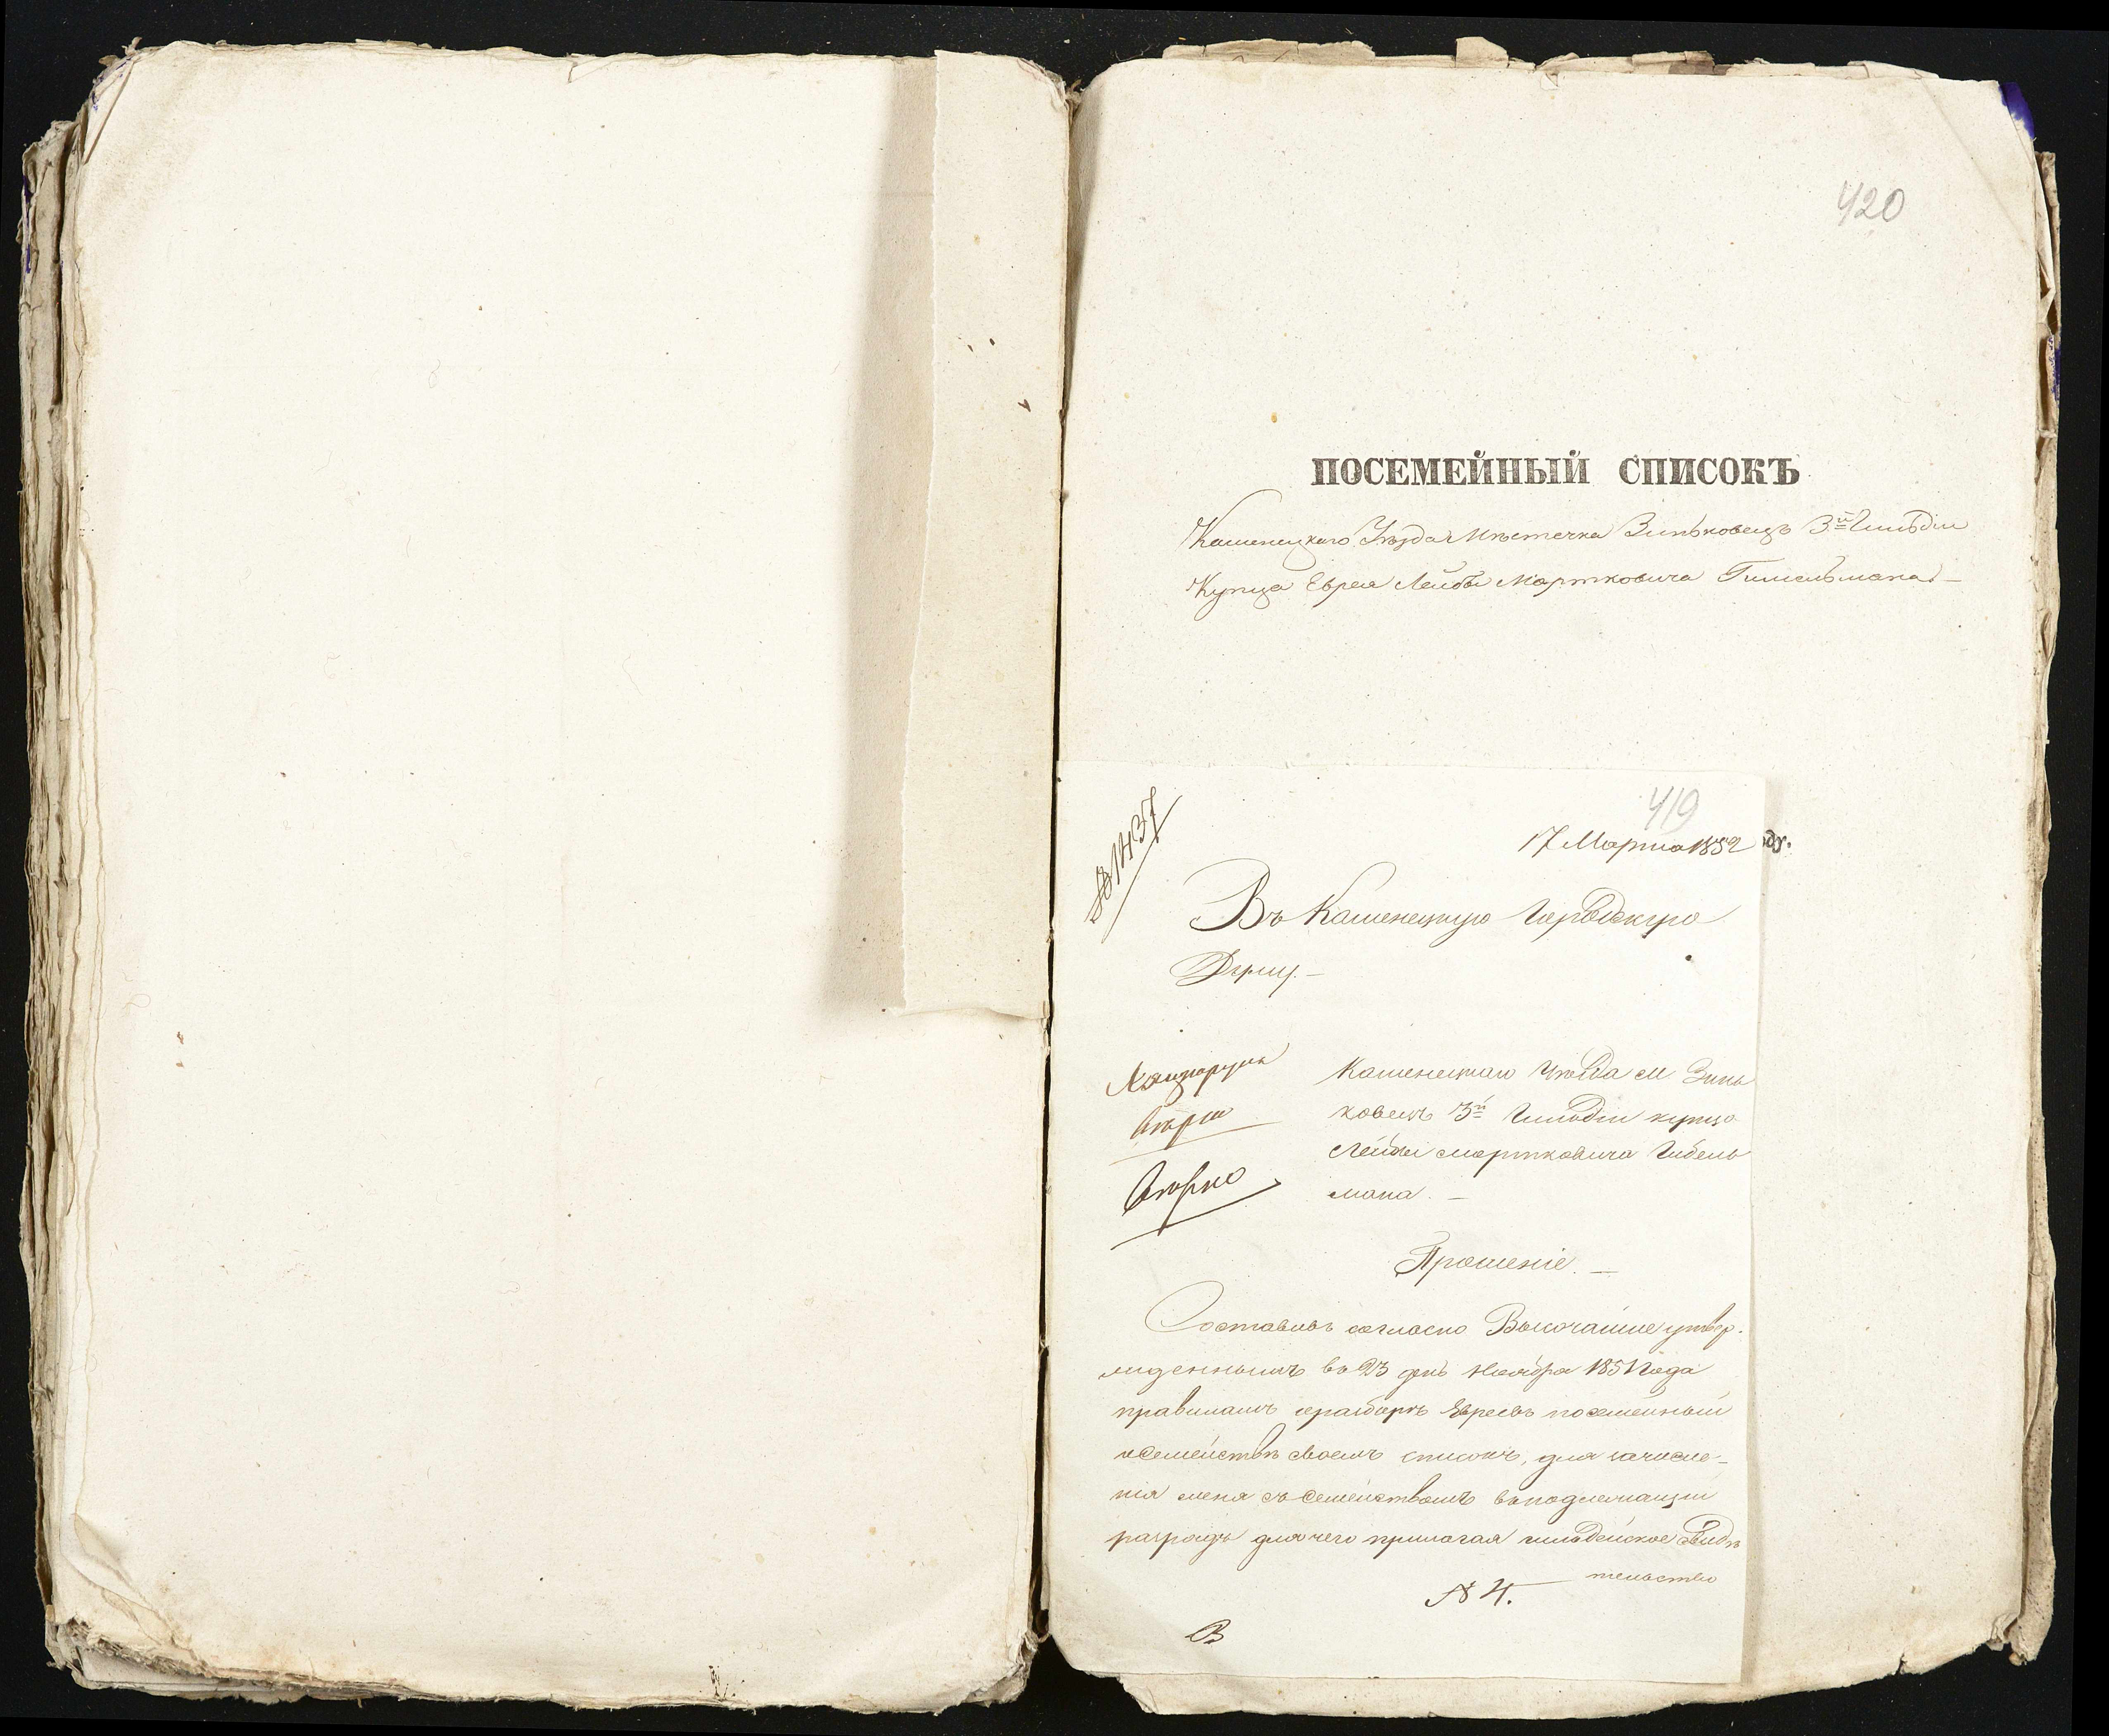 420
ПОСЕМЕЙНЫЙ СПИСОКЪ
Каменецкаго Уѣзда Мѣстечка Зиньковецъ 3й Гильдіи
Купца Еврея Лейбы Мортковича Гительмана
419
№ 1437
17 Марта 1852
оду.
Въ Каменецкую Городскую
Думу.
Каменецкаго Уѣзда М Зинь
ковецъ 3й Гильдіи купца
Лейбы Мортковича
мана.
Прошеніе.
Составивъ согласно Высочайше утвер
жденнымъ въ 23 день Ноября 1851 года
правиламъ о разборѣ Евреевъ посемейный
о Семействѣ своемъ списокъ, для зачисле-
нія меня съ Семействомъ въ подлежащій
разрядъ для чего прилагая гильдейское свидѣ
тельство
№ 4.
В